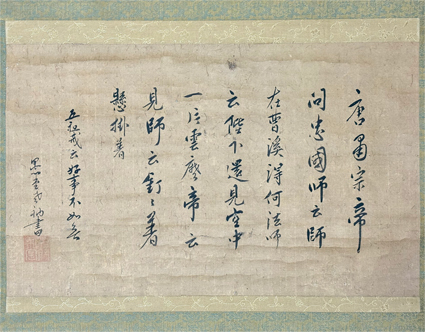 唐肅宗帝
問忠國師云師
在曹溪得何法師
云陛下還見空中
一片雲麼帝云
見師云釘々著
懸掛著
五祖戒云好事不如無
書